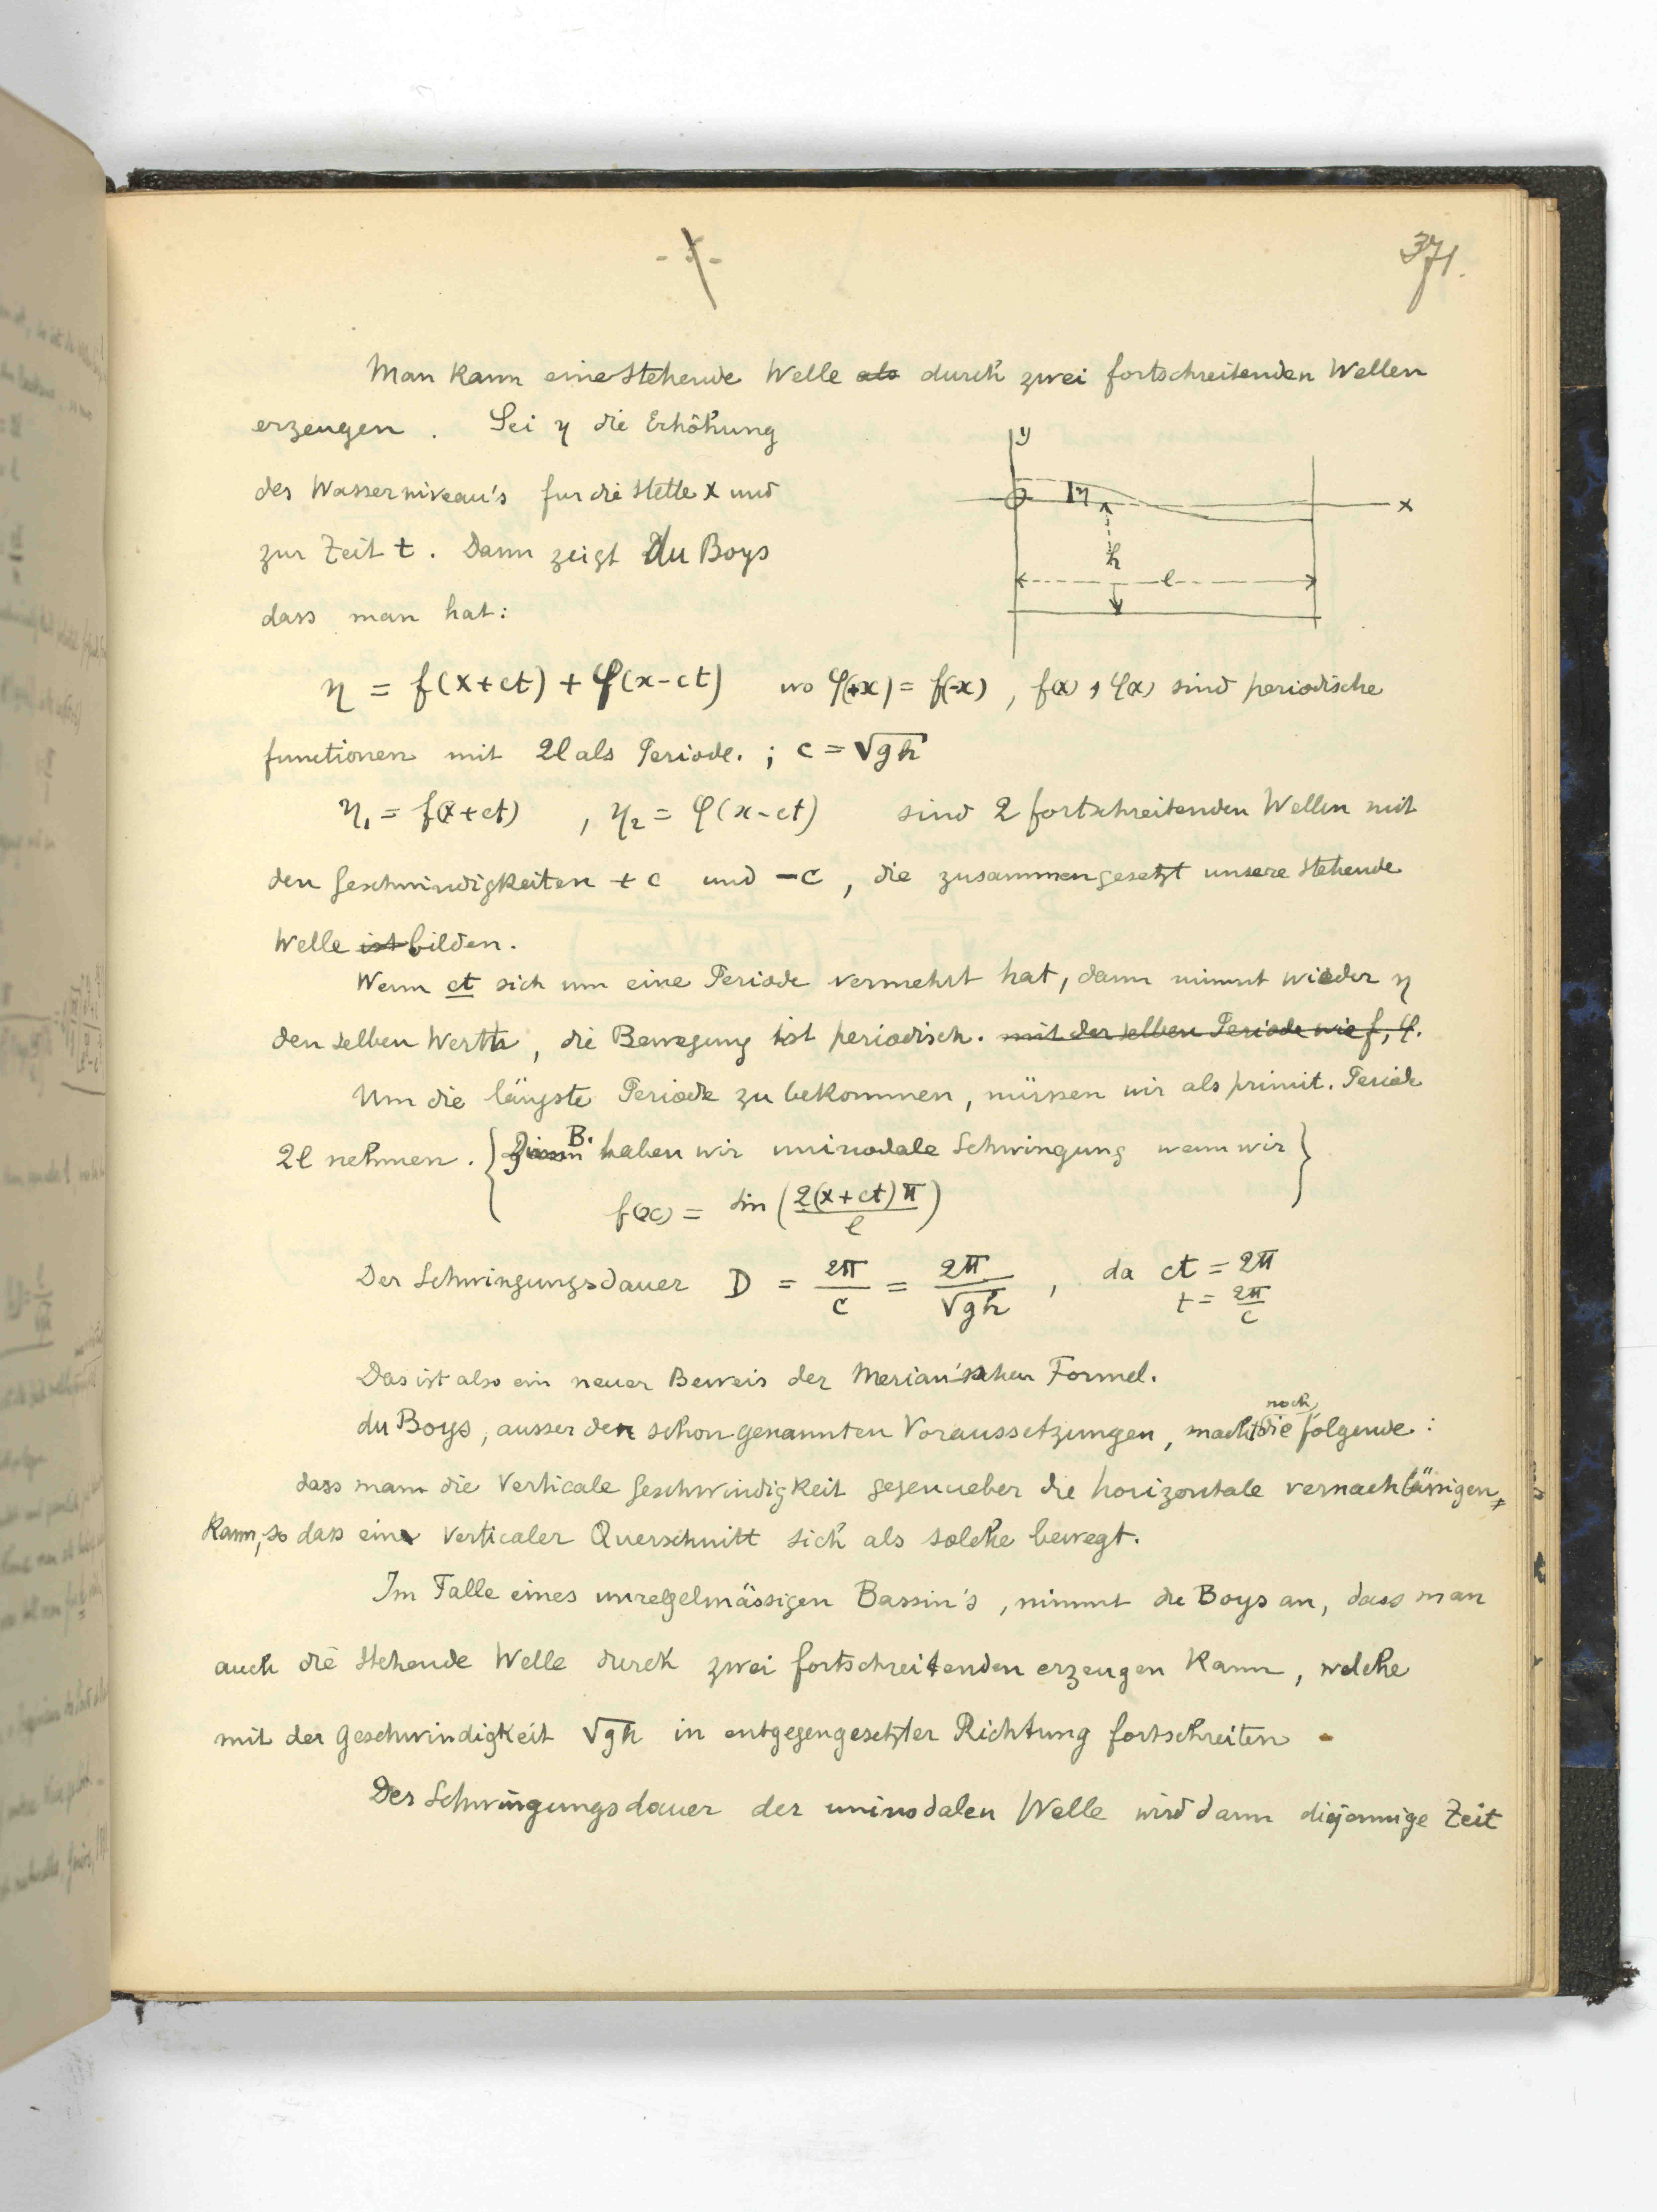 371.
Man kann eine stehende Welle als durch zwei fortschreitenden Wellen
erzeugen. Sei η die Erhöhung
des Wasserniveau's fur die Stelle x und
zur Zeit t. Dann zeigt du Boys
dass man hat:
y
η
x
h
l
η = f(x+ct) + φ(x-ct) wo φ(+x) = f(-x), f(x), φ(x) sind periodische
functionen mit 2l als Periode. ; c = √gh
η₁ = f(x+ct) , η₂ = φ(x-ct) sind 2 fortschreitenden Wellen mit
den Geschwindigkeiten +c und -c, die zusammengesetzt unsere stehende
Welle ist bilden.
Wenn ct sich um eine Periode vermehrt hat, dann nimmt wieder η
den selben Werth, die Bewegung ist periodisch. mit der selben Periode wie f, φ.
Um die längste Periode zu bekommen, müssen wir als primit. Periode
2l nehmen. { B. haben wir uninodale Schwingung wenn wir }
f(x) = sin (2(x+ct)π/l)
Der Schwingungsdauer D = 2π/c = 2π/√gh , da ct = 2π
t = 2π/c
Das ist also ein neuer Beweis der Merian'schen Formel.
noch
du Boys, ausser den schon genannten Voraussetzungen, macht die folgende:
dass man die verticale Geschwindigkeit gegenueber die horizontale vernachlässigen
kann, so dass ein verticaler Querschnitt sich als solche bewegt.
Im Falle eines unregelmässigen Bassin's, nimmt du Boys an, dass man
auch die stehende Welle durch zwei fortschreitenden erzeugen kann, welche
mit der Geschwindigkeit √gh in entgegengesetzter Richtung fortschreiten.
Der Schwingungsdauer der uninodalen Welle wird dann diejennige Zeit